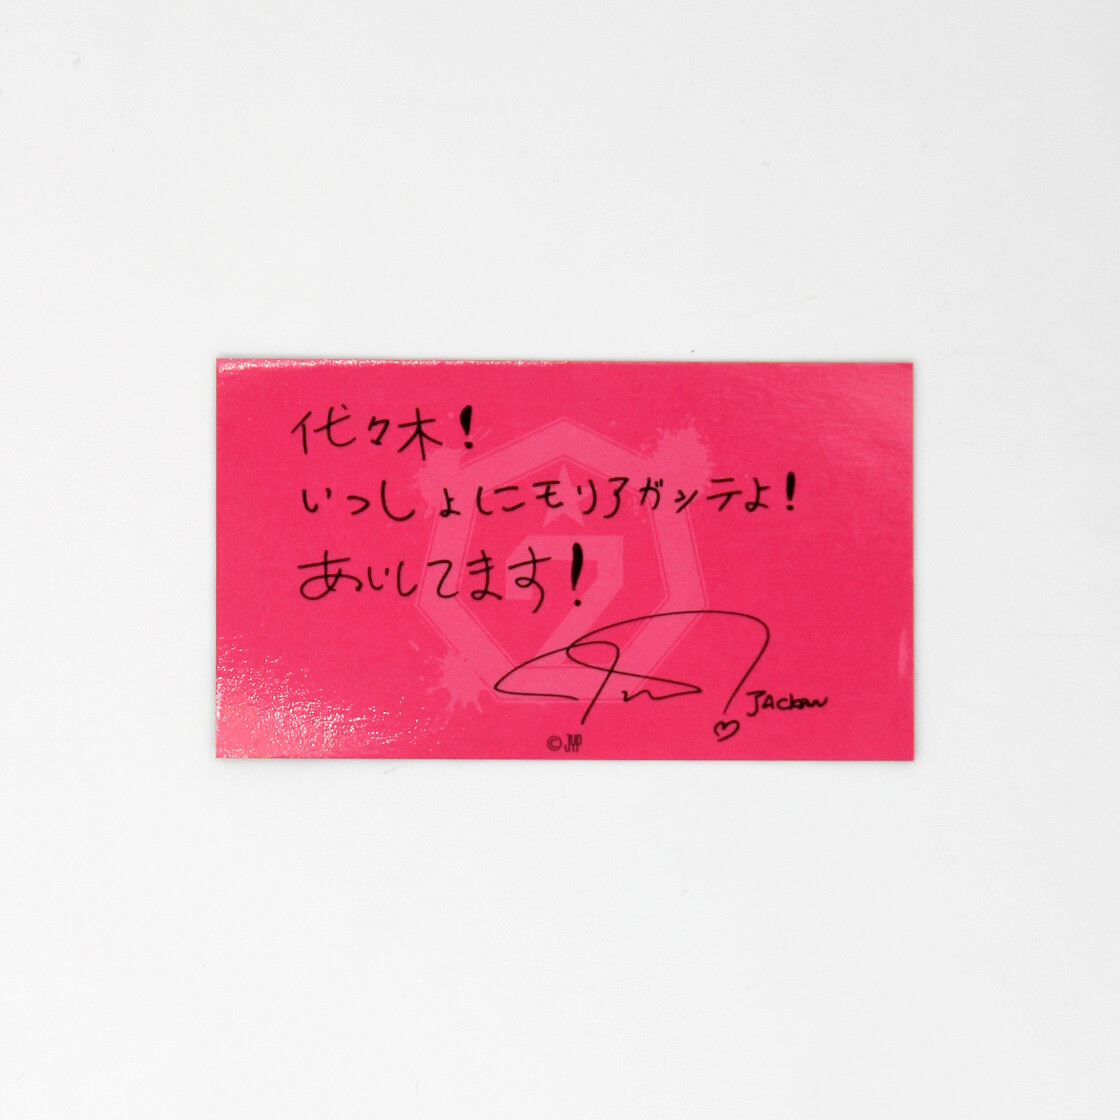 代々木!
いっしょにモリアガシテよ!
あいしてます!
JACKSON
7
© JYP